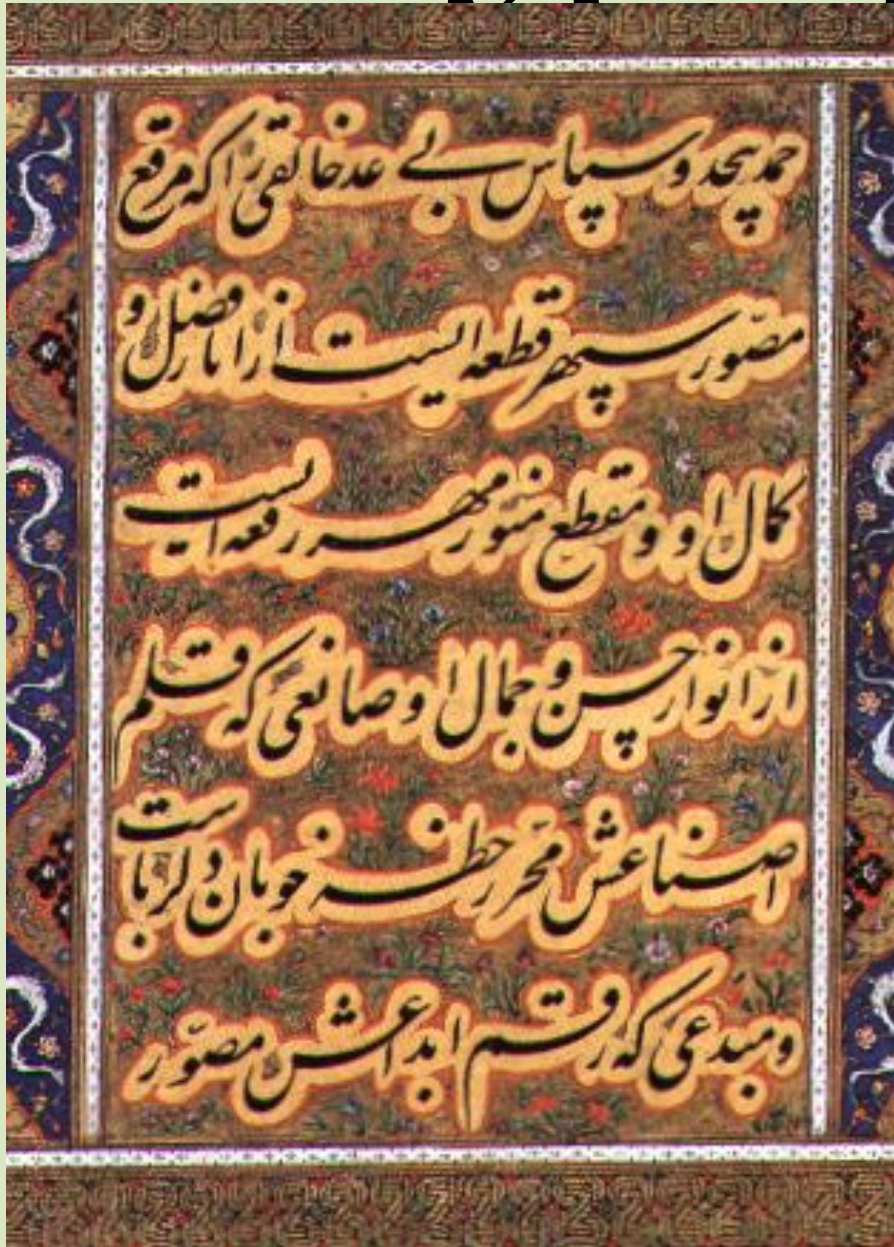 حمد بیحد و سپاس بی عد خالقی را که مرقع
مصوّر سپهر قطعه ایست از اثار فضل و
کمال او و مقطع منوّر مهر رقعه ایست
از انوار حسن و جمال او صانعی که قلم
اصناعش محرّر خط خوبان دلرباست
و مبدعی که رقم ابداعش مصوّر